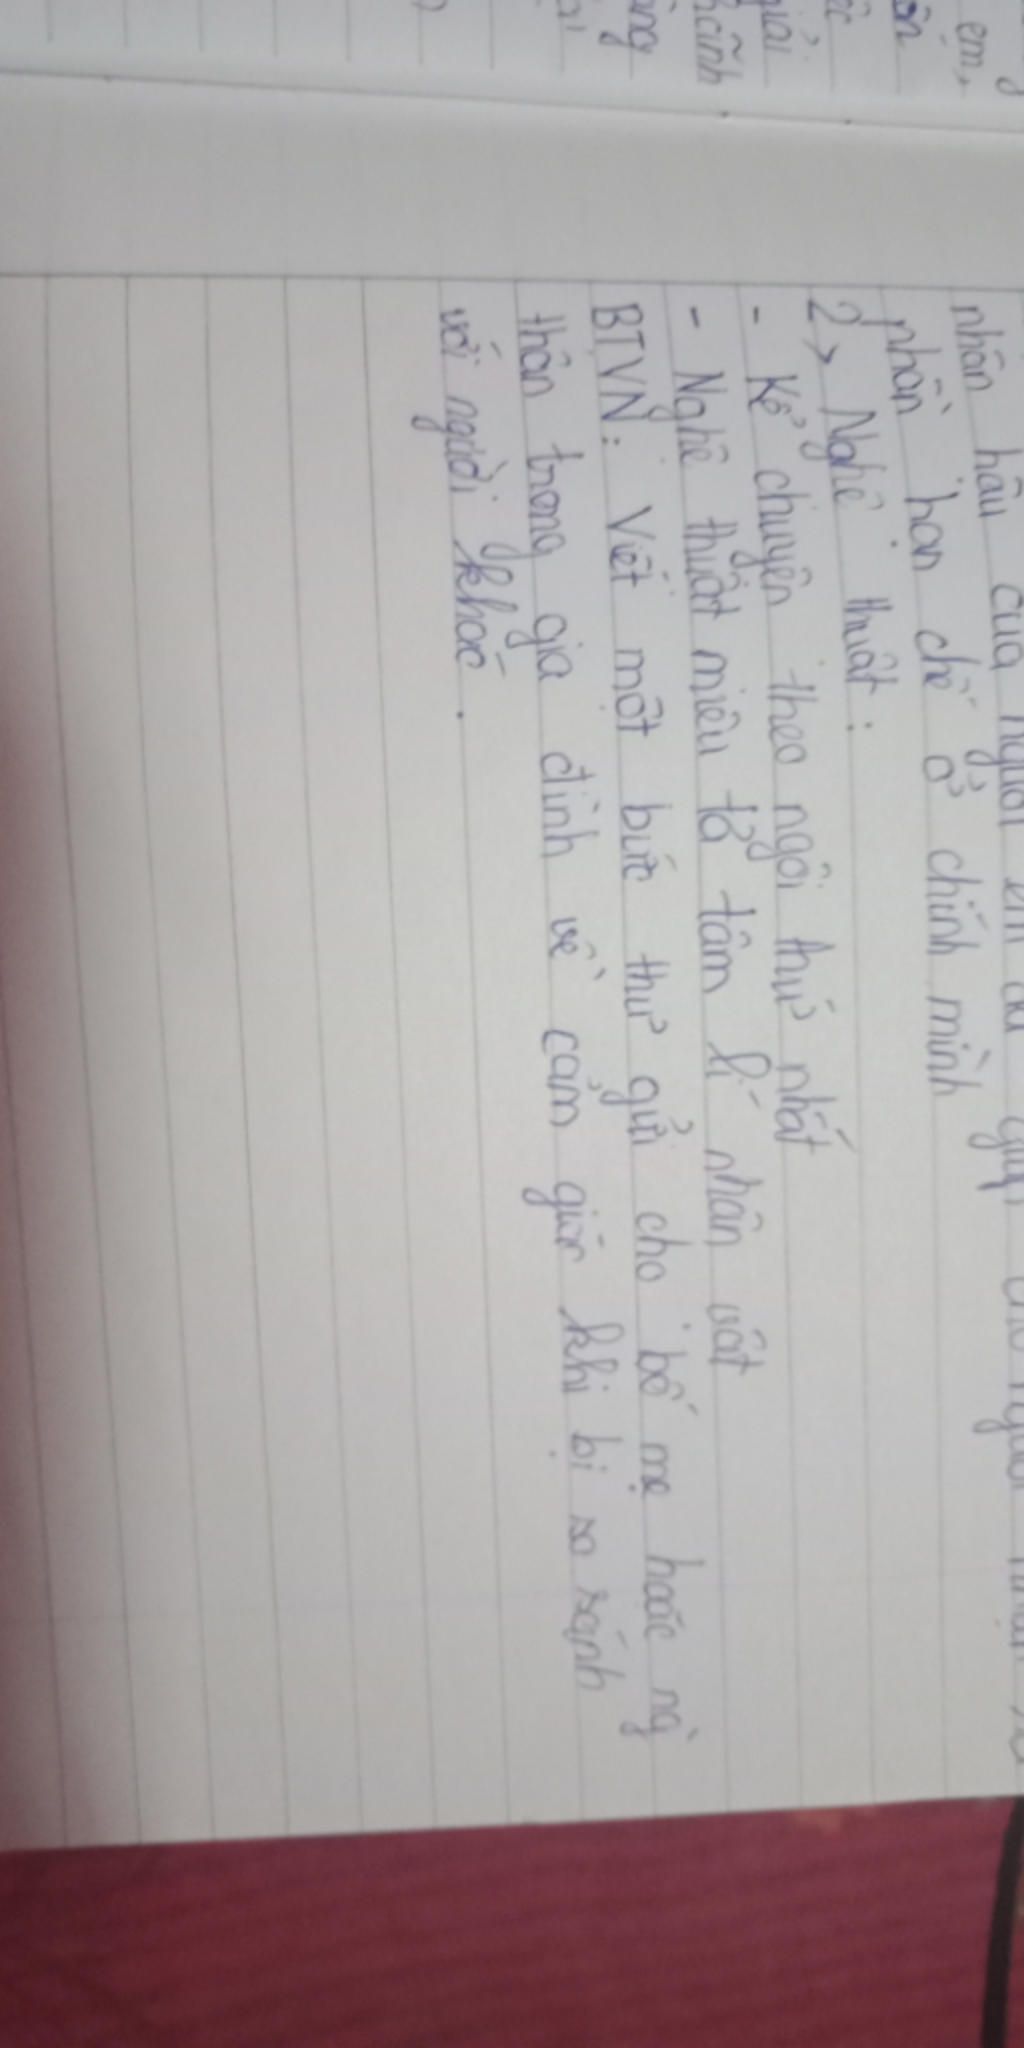 em,
nhân hậu của người em đã giúp cho người
phần hạn chế ở chính mình
2> Nghệ thuật:
- Kể chuyện theo ngôi thứ nhất
- Nghệ thuật miêu tả tâm lí nhân vật
BTVN: Viết một bức thư gửi cho bố mẹ hoặc ng`
thân trong gia đình về cảm giác khi bị so sánh
với người khác.